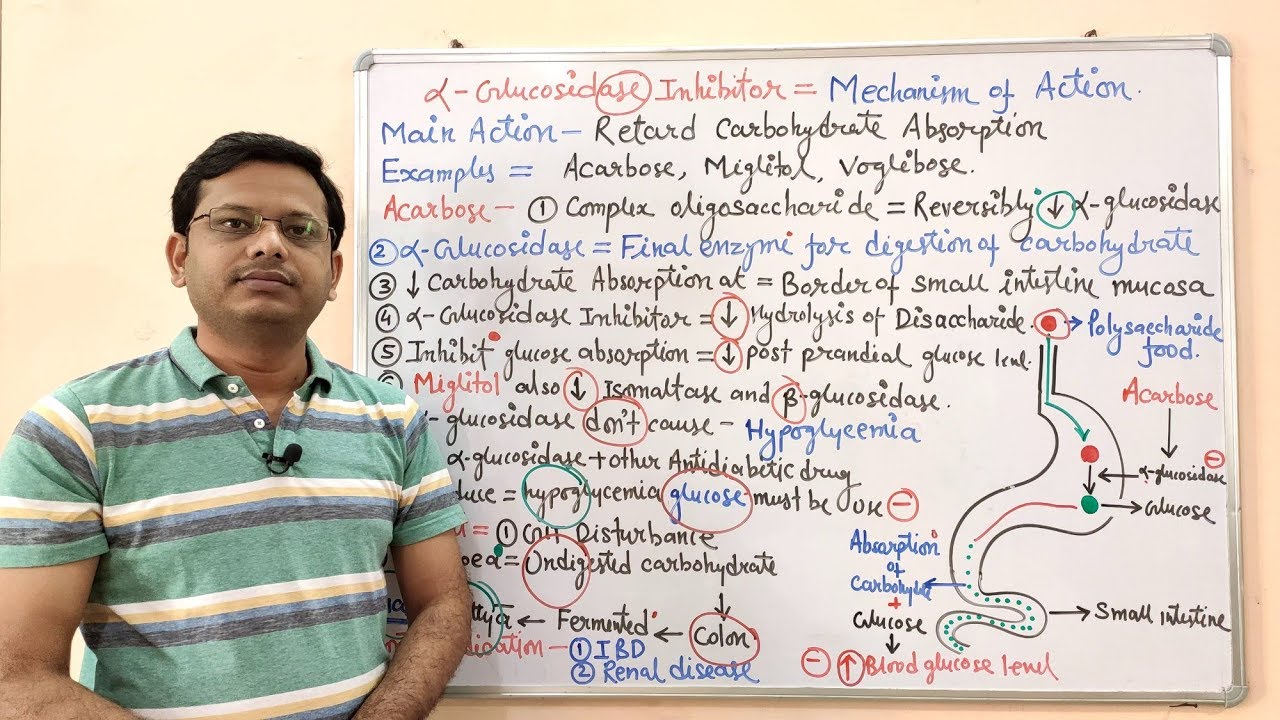 α-Glucosidase Inhibitor = Mechanism of Action.
Main Action - Retard Carbohydrate Absorption
Examples = Acarbose, Miglitol, Voglibose.
Acarbose - ① Complex oligosaccharide = Reversibly ↓ α-glucosidase
② α-Glucosidase = Final enzyme for digestion of carbohydrate
③ ↓ Carbohydrate Absorption at = Border of small intestine mucosa
④ α-Glucosidase Inhibitor = ↓ Hydrolysis of Disaccharide.
⑤ Inhibit glucose absorption = ↓ post prandial glucose level.
Miglitol also ↓ Isomaltase and β-glucosidase.
-glucosidase don't cause - Hypoglycemia
α-glucosidase + other Antidiabetic drug
duce = hypoglycemia glucose must be use
① Disturbance
= Undigested carbohydrate
← Fermented ← Colon
ication - ① IBD
② Renal disease
→ Polysaccharide
food.
Acarbose
α-glucosidase ⊖
→ Glucose
Absorption
of
Carbohydrate
+
Glucose
→ Small intestine
⊖ ↑ Blood glucose level